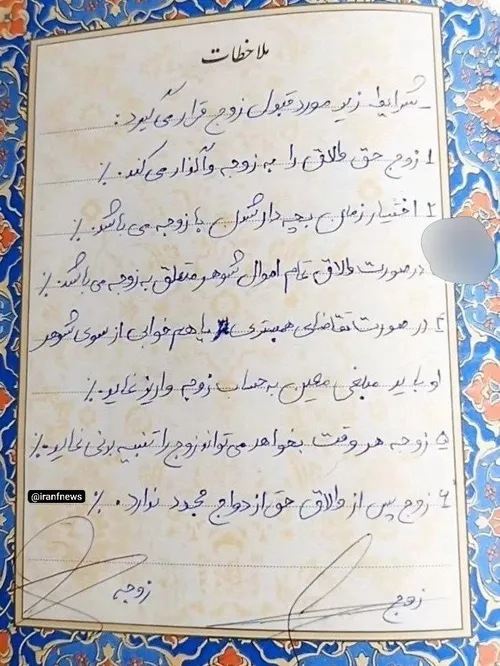 ملاحظات
_شرایط زیر مورد قبول زوج قرار می گیرد:
۱ زوج حق طلاق را به زوجه واگذار می کند. ٪
۲ اختیار زمان بچه دار شدن با زوجه می باشد. ٪
در صورت طلاق تمام اموال شوهر متعلق به زوجه می باشد. ٪
۴ در صورت تقاضای همبستری یا هم خوابی از سوی شوهر
او باید مبلغی معین به حساب زوجه واریز نماید. ٪
۵ زوجه هر وقت بخواهد می تواند زوج را تنبیه بدنی نماید. ٪
۶ زوج پس از طلاق حق ازدواج مجدد ندارد. ٪
@iranfnews
زوج
زوجه